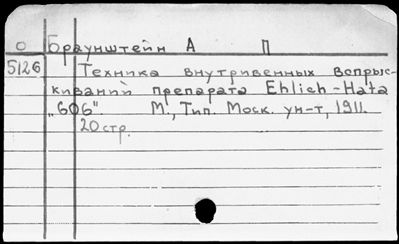 О Браунштейн А П
5126 Техника внутривенных вспрыс-
киваний препарата Ehlich-Hata
„606". М., Тип. Моск. ун-т, 1911.
20 стр.